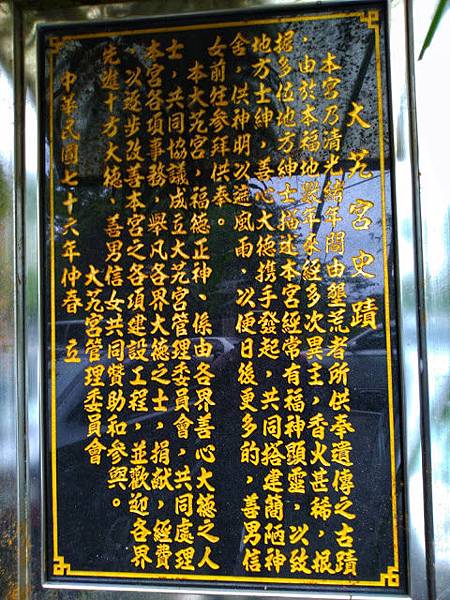 大苑宮史蹟
本宮乃清光緒年間由墾荒者所供奉遺傳之古蹟
，由於本福地數年來經多次異主，香火甚稀，根
据多位地方紳士描述本宮經常有福神顯靈，以致
地方士紳，善心大德携手發起，共同搭建簡陋神
舍，供神明以遮風雨，以便日後更多的，善男信
女前往參拜供奉。
本大苑宮，福德正神、係由各界善心大德之人
士，共同協議成立大苑宮管理委員會，共同處理
本宮各項事務，舉凡各界大德之士，捐獻，經費
，以逐步改善本宮之各項建設工程，並歡迎各界
先進十方大德，善男信女共同贊助和參與。
大苑宮管理委員會
中華民國七十六年仲春 立